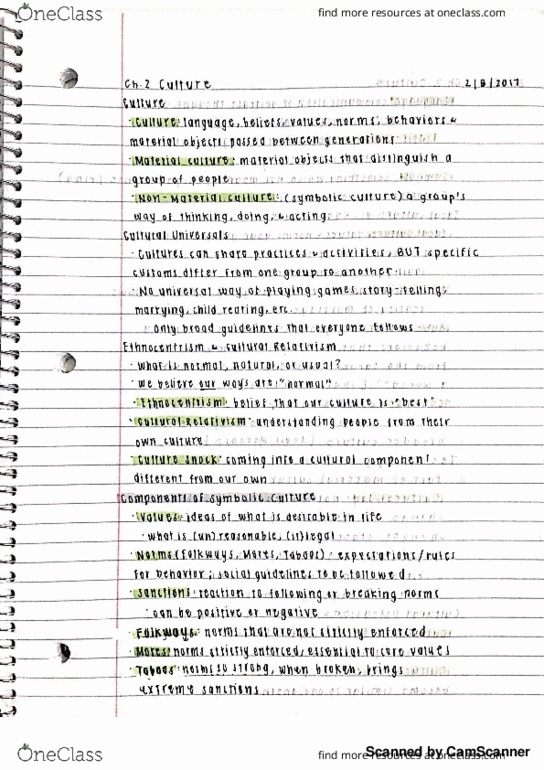 OneClass
find more resources at oneclass.com
Ch.2 Culture 2/8/2017
Culture
· Culture: language, beliefs, values, norms, behaviors &
material objects passed between generations
· Material culture: material objects that distinguish a
group of people
· Non-Material culture: (symbolic culture) a group's
way of thinking, doing, & acting
Cultural Universals
· Cultures can share practices & activities, BUT specific
customs differ from one group to another
· No universal way of playing games, story-telling,
marrying, child rearing, etc.
· only broad guidelines that everyone follows
Ethnocentrism & Cultural Relativism
· what is normal, natural, or usual?
· we believe our ways are "normal"
· Ethnocentrism: belief that our culture is "best"
· Cultural Relativism: understanding people from their
own culture
· Culture Shock: coming into a cultural component
different from our own
Components of Symbolic Culture
· Values: ideas of what is desirable in life
· what is (un)reasonable, (il)legal
· Norms (Folkways, Mores, Taboos): expectations/rules
for behavior; social guidelines to be followed
· Sanctions: reaction to following or breaking norms
· can be positive or negative
· Folkways: norms that are not strictly enforced
· Mores: norms strictly enforced, essential to core values
· Taboos: norms so strong, when broken, brings
extreme sanctions
OneClass
find more resources at oneclass.com
Scanned by CamScanner